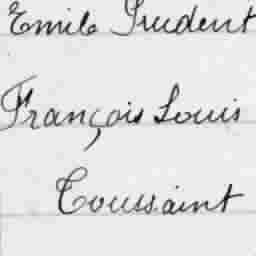 Emile Prudent
François Louis
Toussaint